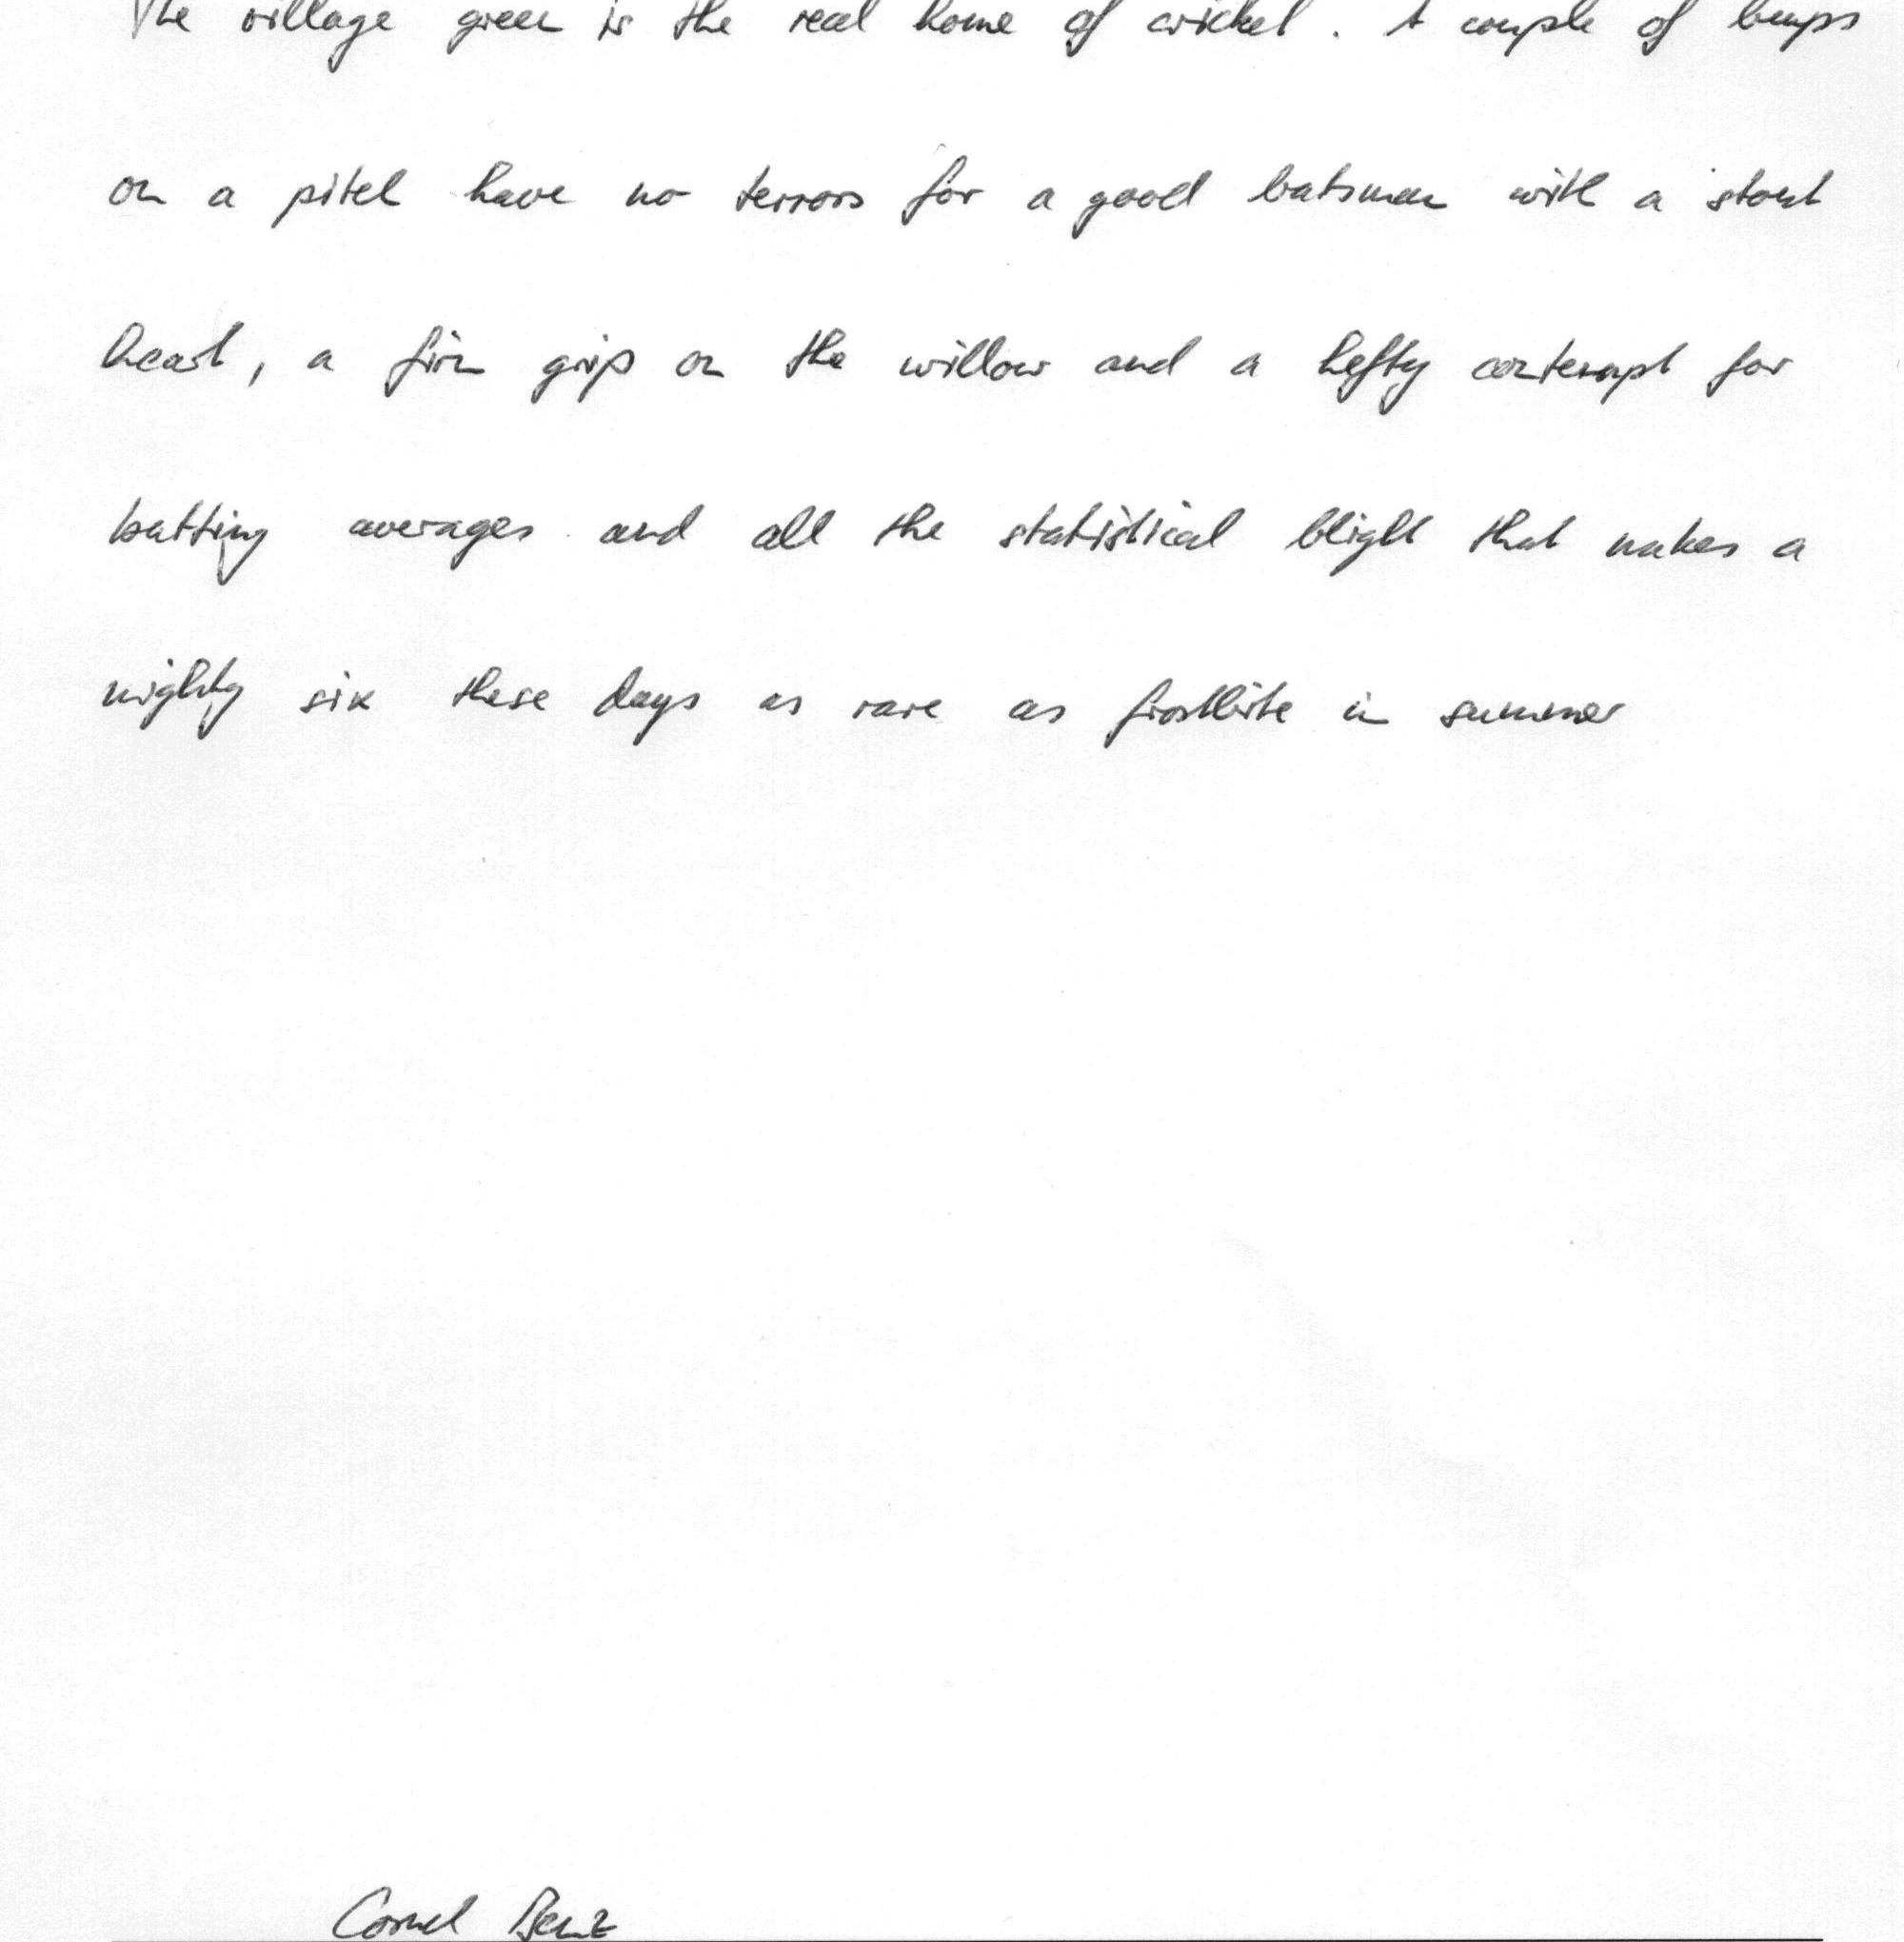 The village green is the real home of cricket. A couple of bumps
on a pitch have no terrors for a good batsman with a stout
heart, a firm grip on the willow and a hefty contempt for
batting averages and all the statistical blight that makes a
mighty six these days as rare as frostbite in summer
Cornel Benz